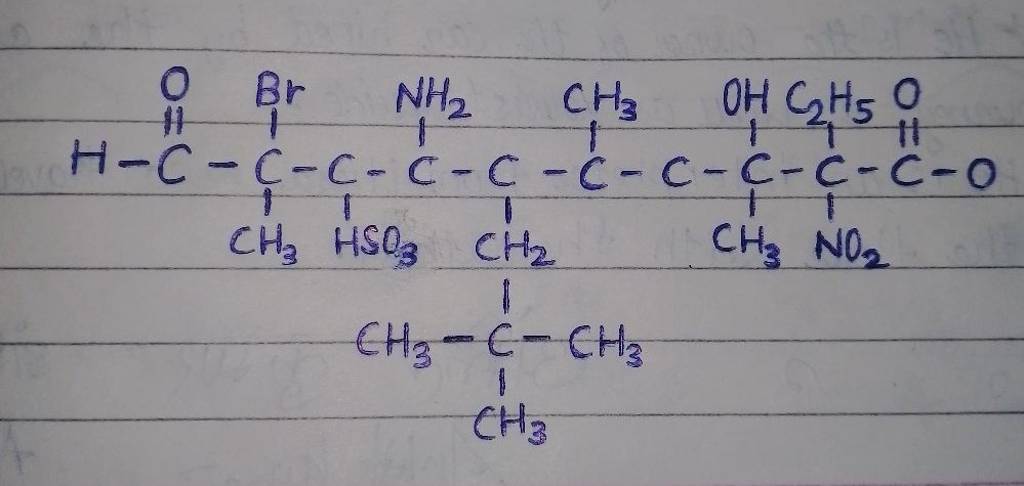 O Br NH2 CH3 OH C2H5 O
H-C-C-C-C-C-C-C-C-C-C-O
CH3 HSO3 CH2 CH3 NO2
CH3-C-CH3
CH3